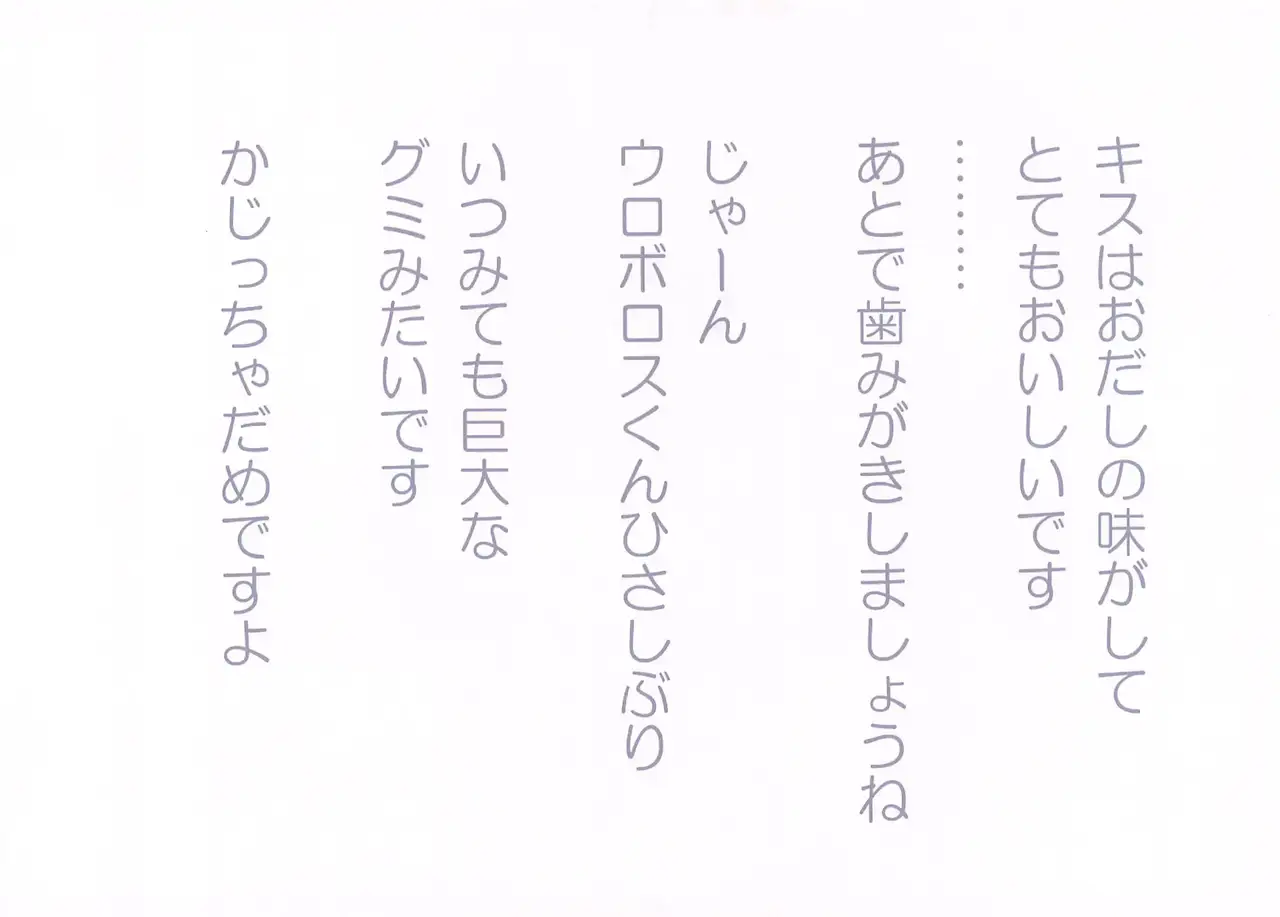 キスはおだしの味がして
とてもおいしいです
………
あとで歯みがきしましょうね
じゃーん
ウロボロスくんひさしぶり
いつみても巨大な
グミみたいです
かじっちゃだめですよ